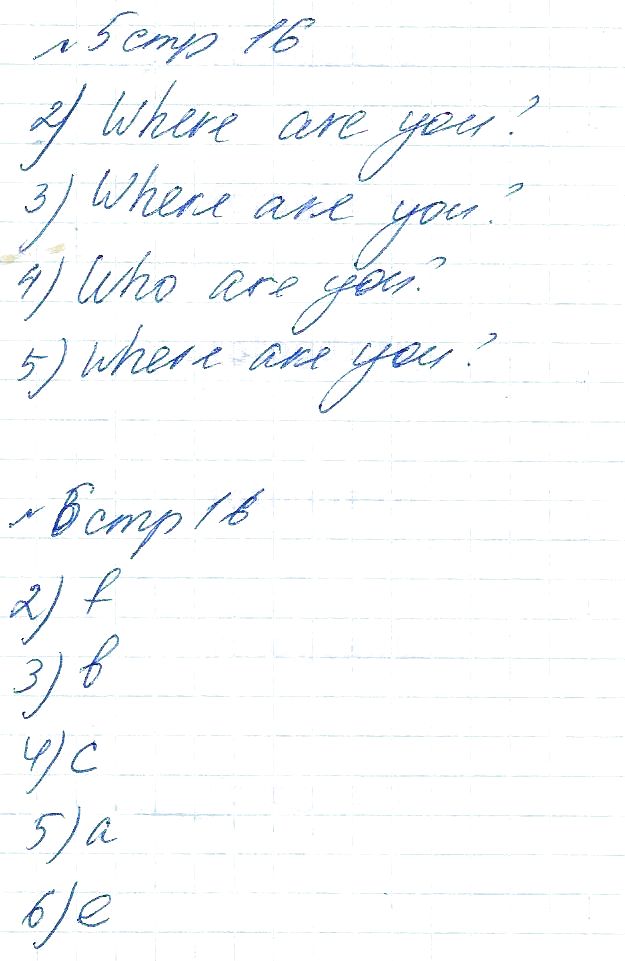 № 5 стр 16
2) Where are you?
3) Where are you?
4) Who are you?
5) Where are you?
№ 6 стр 16
2) f
3) b
4) c
5) a
6) e